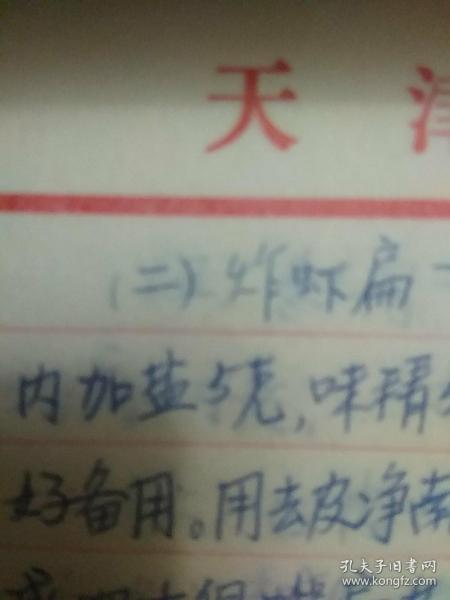 天 津
(二)炸虾扁
内加盐5克,味精
好备用。用去皮净南
孔夫子旧书网
www.kongfz.com